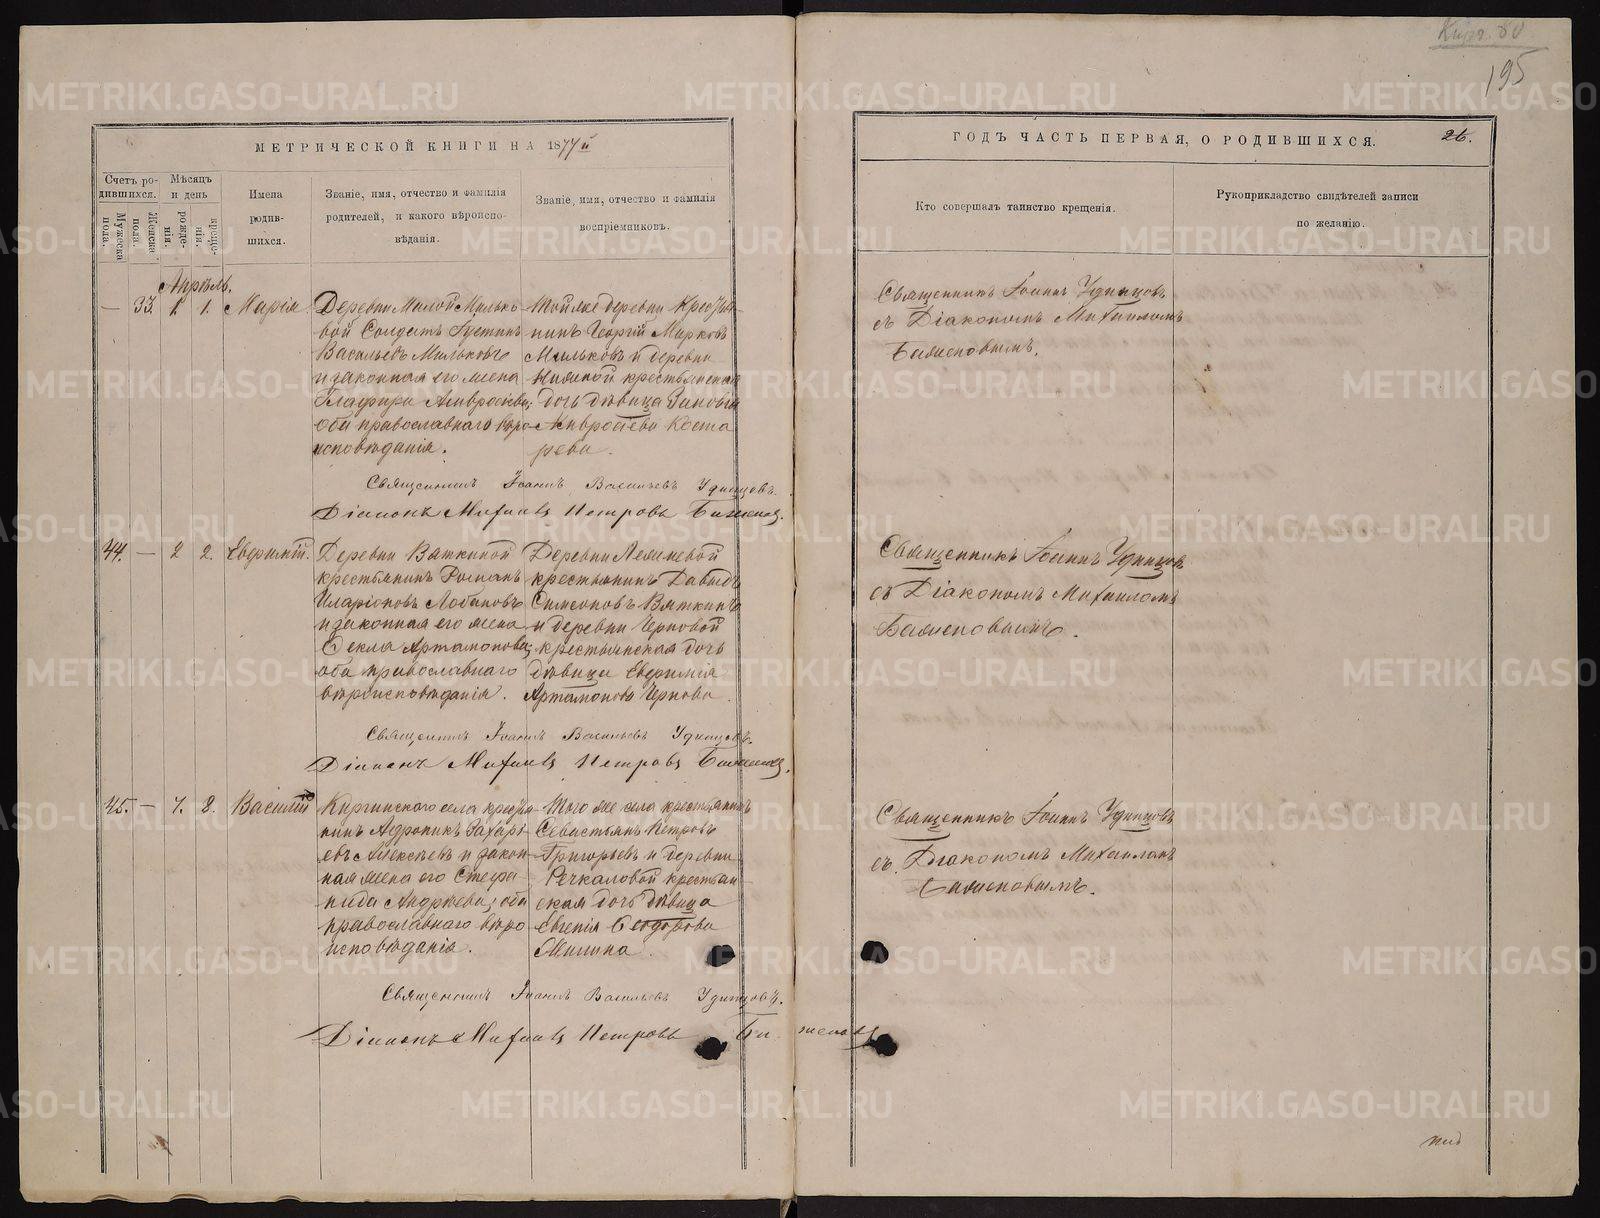 195
МЕТРИЧЕСКОЙ КНИГИ НА 1877й
ГОДЪ ЧАСТЬ ПЕРВАЯ, О РОДИВШИХСЯ.
26.
Счетъ ро-
дившихся.
Мужеска
пола.
Женска
пола.
Мѣсяцъ
и день
рожде-
нія.
креще-
нія.
Имена
родив-
шихся.
Званіе, имя, отчество и фамилія
родителей, и какого вѣроиспо-
вѣданія.
Званіе, имя, отчество и фамилія
воспріемниковъ.
Кто совершалъ таинство крещенія.
Рукоприкладство свидѣтелей записи
по желанію.
Апрѣль.
— 33. 1. 1. Марія
Деревни Малой Милько-
вой Солдатъ Іустинъ
Васильевъ Мильковъ
и законная его жена
Глафира Амвросіева;
оба православнаго вѣро-
исповѣданія.
Той же деревни Крестья-
нинъ Георгій Марковъ
Мильковъ и деревни
крестьянская
дочь дѣвица Зиновія
Амвросіева Коста
рева.
Священникъ Іоаннъ Удинцовъ
съ Діакономъ Михаиломъ
Баженовымъ.
Священникъ Іоаннъ Васильевъ Удинцовъ.
Діаконъ Михаилъ Петровъ Баженовъ.
44. — 2 2. Евфимій.
Деревни Вяткиной
крестьянинъ Романъ
Иларіоновъ Лобановъ
и законная его жена
Ѳекла Артамонова;
оба православнаго
вѣроисповѣданія.
Деревни
крестьянинъ Давыдъ
Симеоновъ Вяткинъ
и деревни Черновой
крестьянская дочь
дѣвица Евфимія
Артамонова Чернова.
Священникъ Іоаннъ Удинцовъ
съ Діакономъ Михаиломъ
Баженовымъ.
Священникъ Іоаннъ Васильевъ Удинцовъ.
Діаконъ Михаилъ Петровъ Баженовъ.
45. — 7. 8. Василій
Киргинскаго села крестья
нинъ Адроникъ Захарь-
евъ Алексѣевъ и закон-
ная жена его Стефа-
нида Андрѣева; оба
православнаго вѣро
исповѣданія.
Того же села крестьянинъ
Севастьянъ Петровъ
Григорьевъ и деревни
Речкаловой крестьян-
ская дочь дѣвица
Евгенія Ѳеодорова
Милина.
Священникъ Іоаннъ Удинцовъ
съ Діакономъ Михаиломъ
Баженовымъ.
Священникъ Іоаннъ Васильевъ Удинцовъ.
Діаконъ Михаилъ Петровъ Баженовъ
METRIKI.GASO-URAL.RU